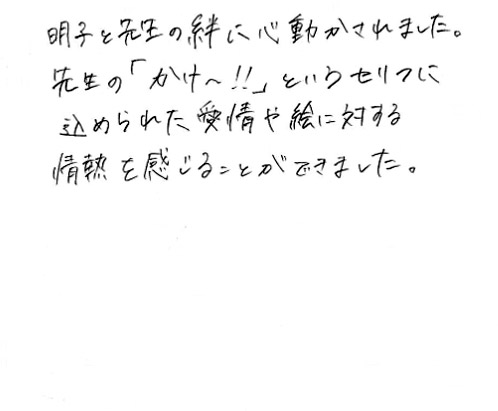 明子と先生の絆に心動かされました。
先生の「かけ~!!」というセリフに
込められた愛情や絵に対する
情熱を感じることができました。